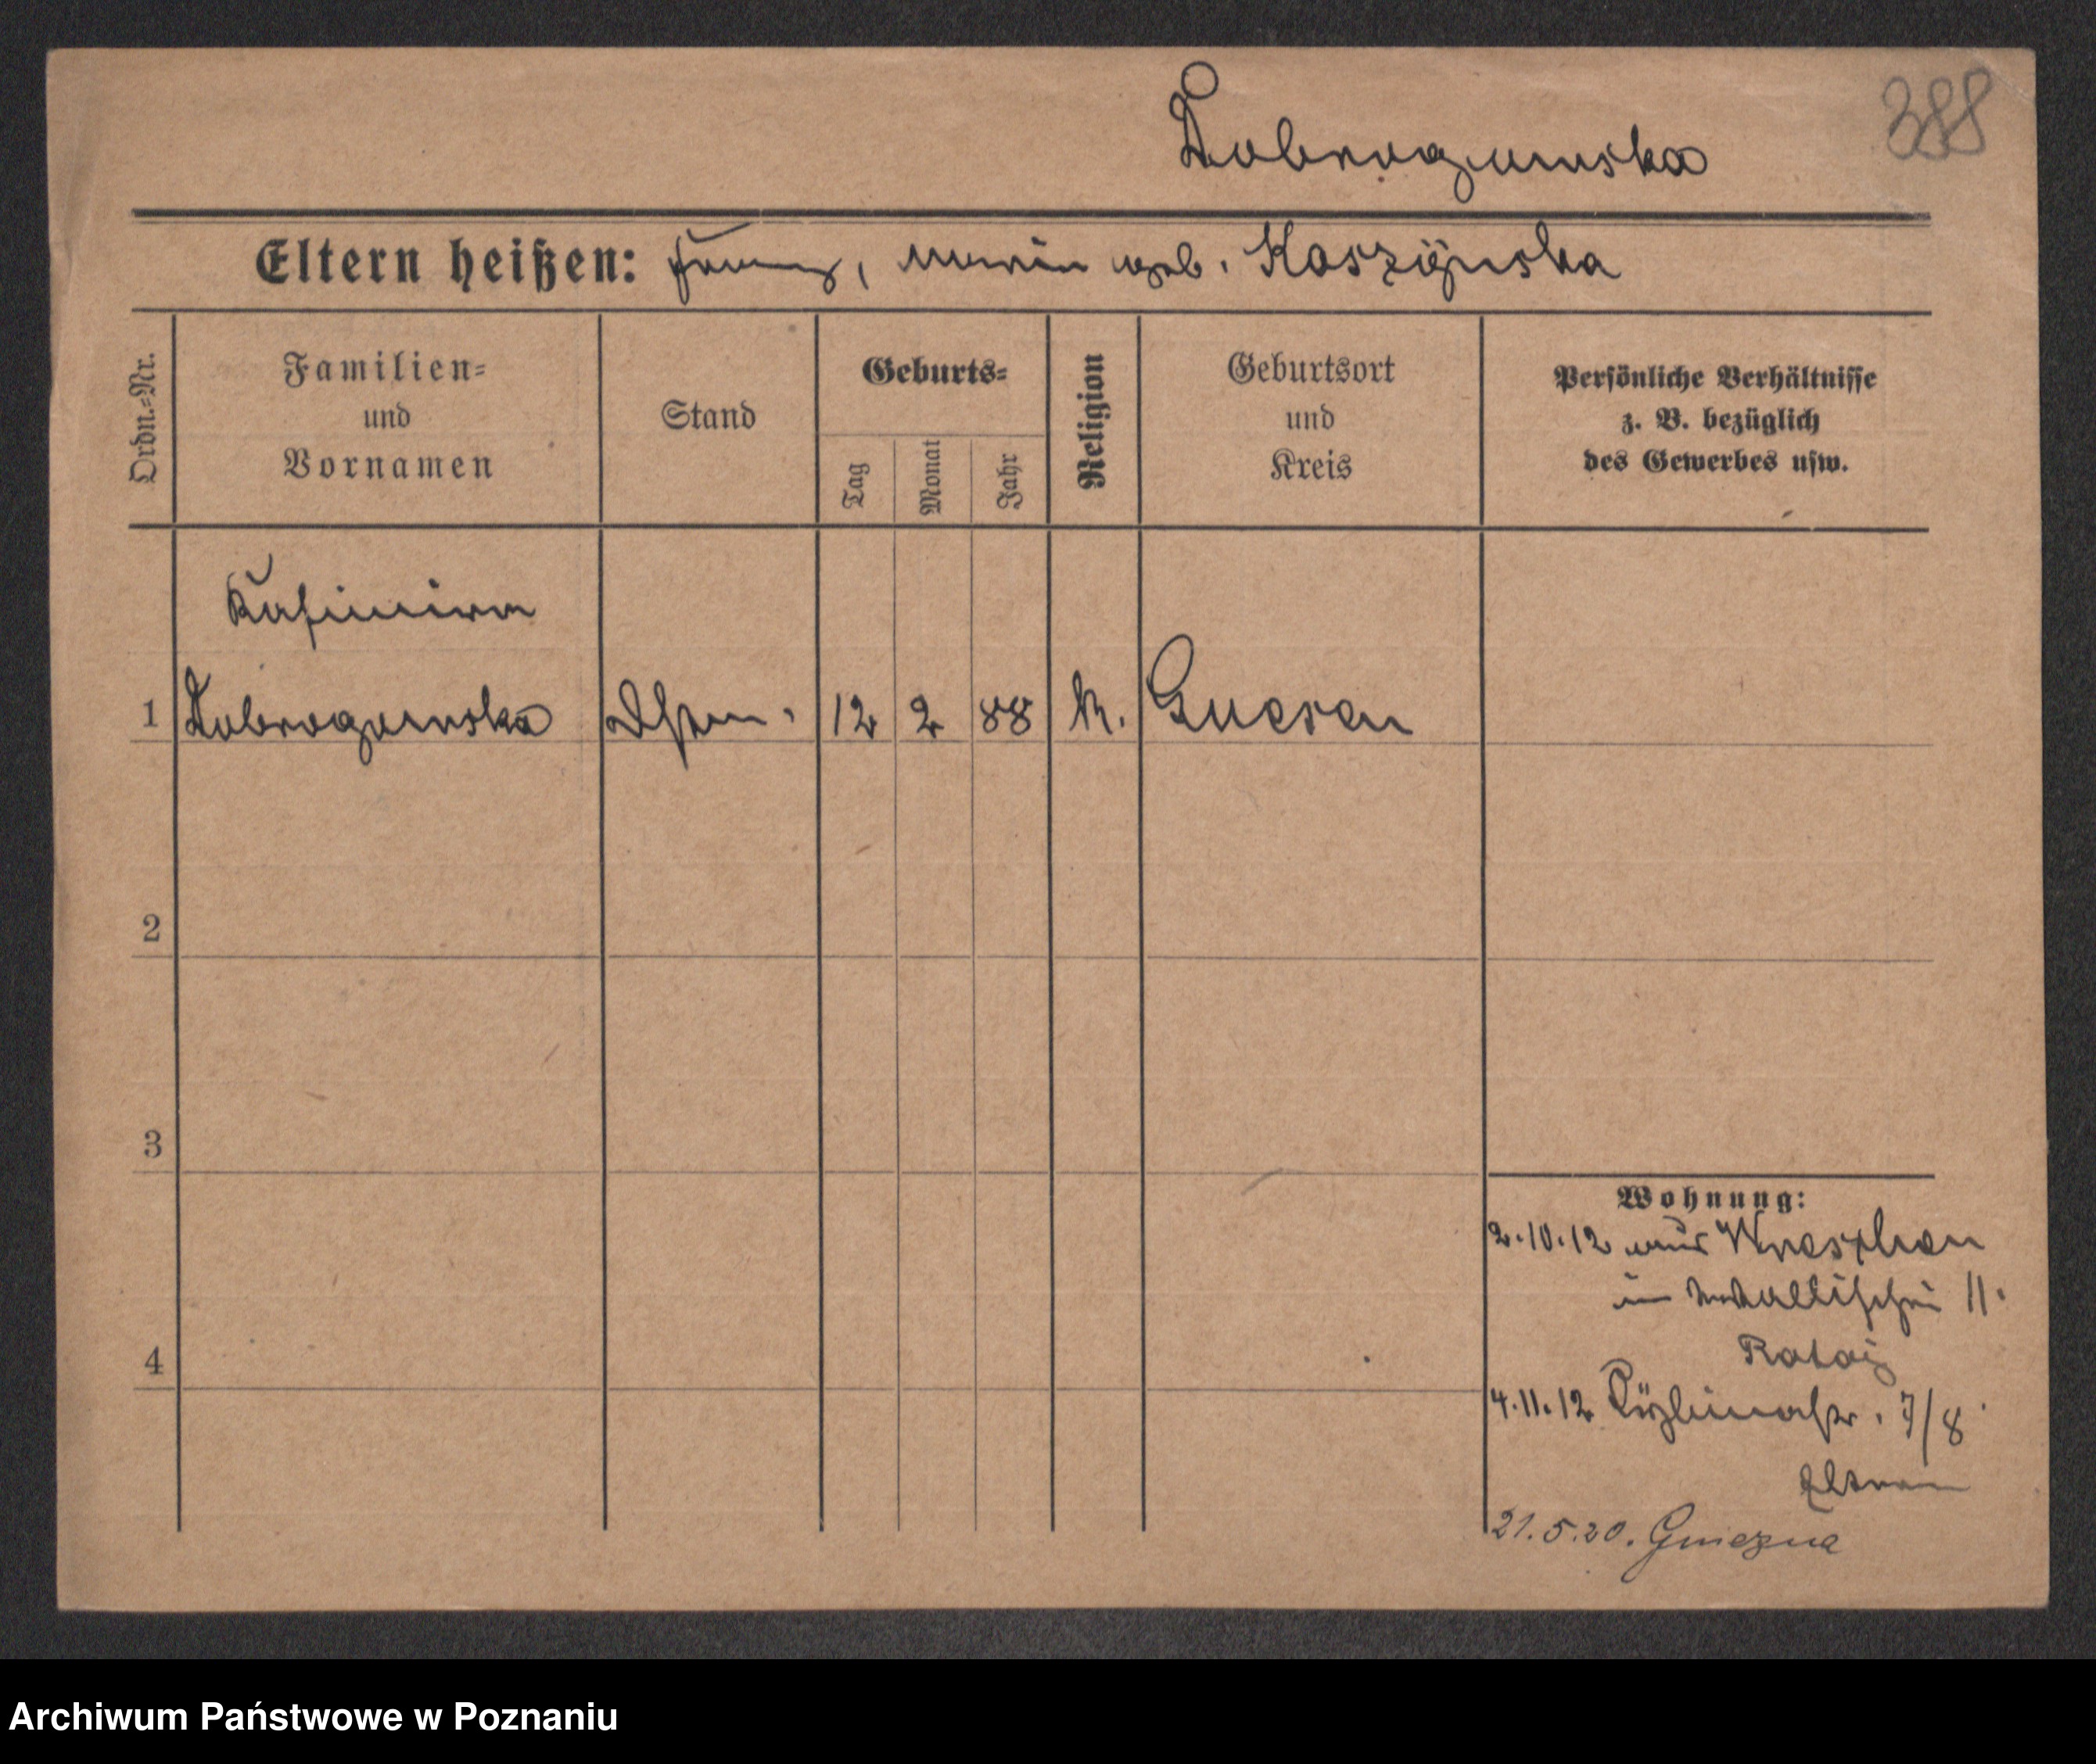 388
Dobrogowska
Eltern heißen: Franz, Maria geb. Koszijnska
Ordn.-Nr.
Familien-
und
Vornamen
Stand
Geburts-
Tag
Monat
Jahr
Religion
Geburtsort
und
Kreis
Persönliche Verhältnisse
z. B. bezüglich
des Gewerbes usw.
Kasimira
1 Dobrogowska 12 2 88 k. Gnesen
2
3
4
Wohnung:
2.10.12 aus Wreschen
in Wallischei 11.
Rataj
4.11.12 7/8
Eltern
21.5.20. Gniezna
Archiwum Państwowe w Poznaniu